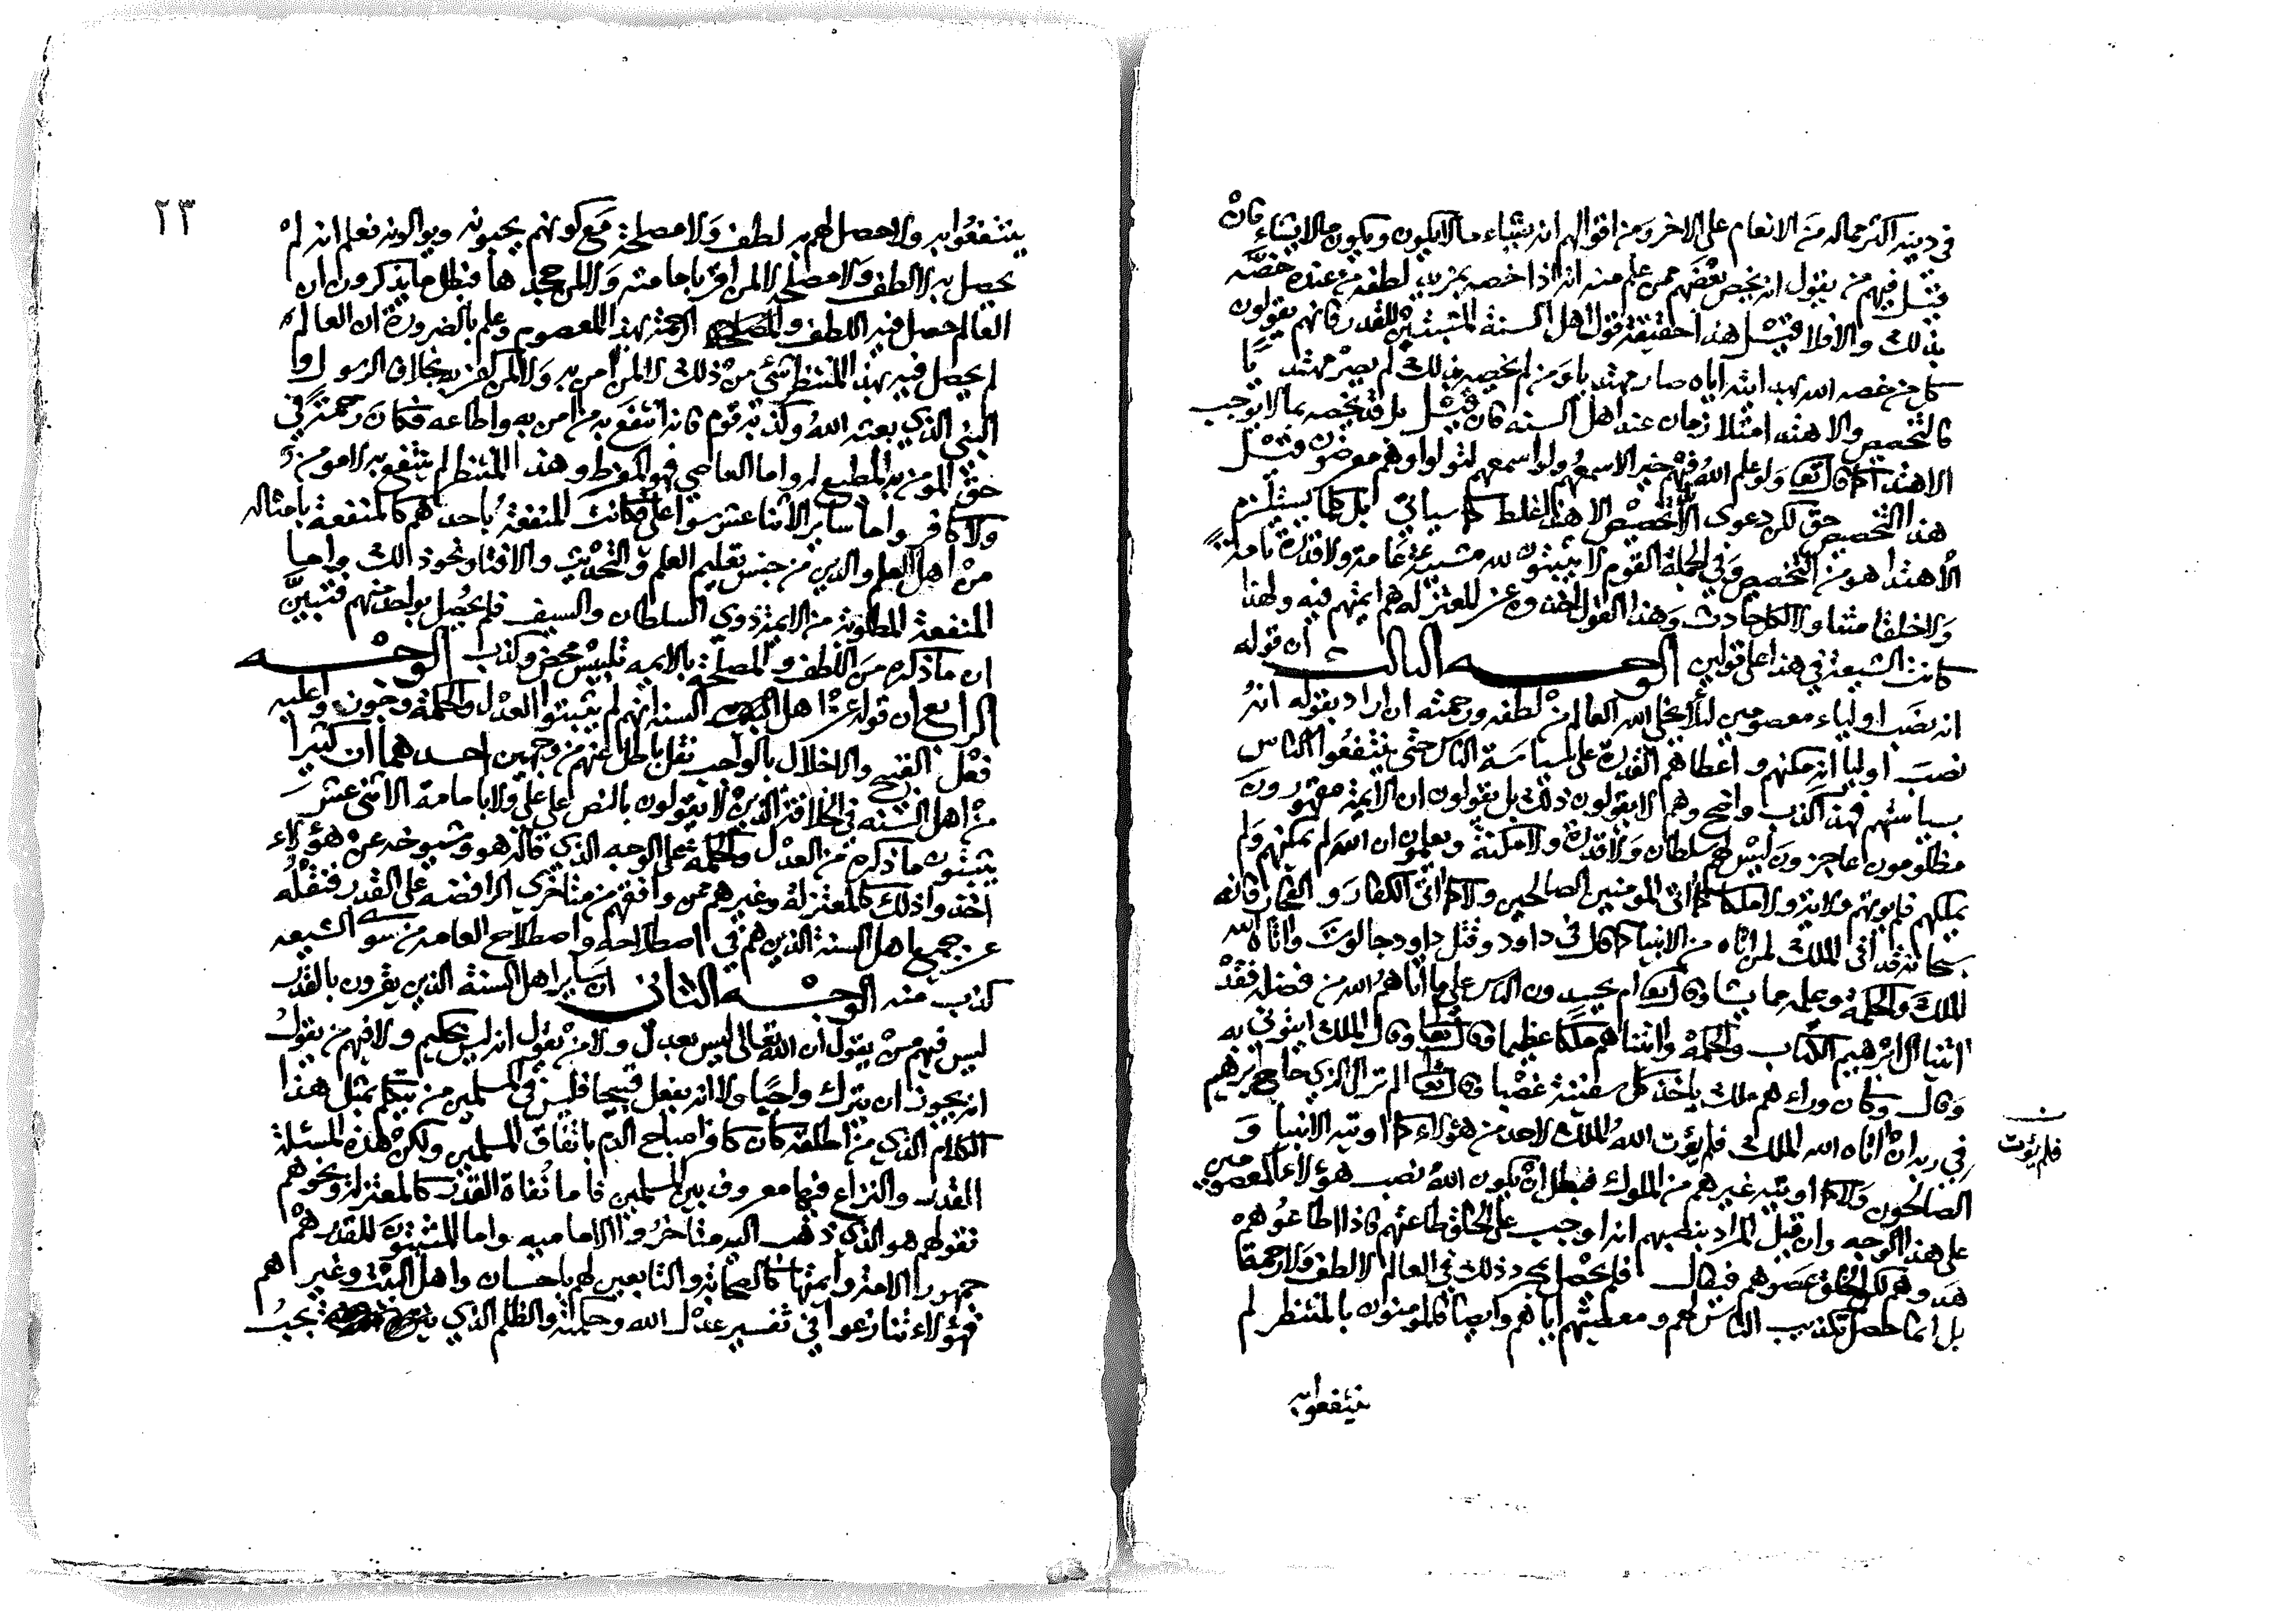 في دينه اكثر مما له من الانعام على الاخر ومن اقوالهم انه يشاء ما لا يكون ويكون ما لا يشاء فان
قيل فيهم من يقول انه يخص بعضهم ممن علم منه انه اذا خصه بمزيد لطفه من عنده خصه
بذلك والا فلا قيل هذا حقيقة قول اهل السنة المثبتين للقدر فانهم يقولون
كل من خصه الله بهدايته اياه صار مهتديا ومن لم يخصه بذلك لم يصر مهتديا
فالتخصيص والاهتدا متلازمان عند اهل السنه فان قيل بل قد يخصه بما لا يوجب
الاهتدا كما قال تعا ولو علم الله فيهم خيرا لاسمعهم ولو اسمعهم لتولوا وهم معرضون قيل
هذا التخصيص حق لكن دعوى لا تخصيص الا هذا غلط كما سياتي بل كلما يستلزم
الاهتدا هو من التخصيص وفي الجملة القوم لا يثبتون لله مشيئة عامة ولا قدرة تامة
ولا خلقا متناولا لكل حادث وهذا القول اخذوه عن المعتزله هم ايمتهم فيه ولهذا
كانت الشيعة في هذا على قولين الوجه الثالث ان قوله
انه نصب اولياء معصومين لئلا يخلي الله العالم من لطفه ورحمته ان اراد بقوله انه
نصب اوليا انه مكنهم واعطاهم القدرة على سياسة الناس حتى ينتفعوا الناس
بسياستهم فهذا كذب واضح وهم لا يقولون ذلك بل يقولون ان الايمة مقهورون
مظلومون عاجزون ليس لهم سلطان ولا قدرة ولا مكنة ويعلمون ان الله لم يمكنهم ولم
يملكهم فلم يوتهم ولاية ولا ملكا كما اتى المومنين الصالحين ولا كما اتى الكفار والفجار فانه
سبحانه قد اتى الملك لمن اتاه من الانبيا كما قال في داود وقتل داود جالوت واتاه الله
الملك والحكمة وعلمه مما يشا وقال تعا ام يحسدون الناس على ما اتاهم الله من فضله فقد
اتينا ال ابرهيم الكتاب والحكمة واتيناهم ملكا عظيما وقال تعا وقال الملك ايتوني به
وقال وكان وراءهم ملك ياخذ كل سفينة غصبا وقال تعا الم تر الى الذي حاج ابرهيم
في ربه ان اتاه الله الملك فلم يؤت الله الملك لاحد من هؤلاء كما اوتيه الانبيا و
الصالحون ولا كما اوتيه غيرهم من الملوك فبطل ان يكون الله نصب هؤلاء المعصومين
على هذا الوجه وان قيل المراد بنصبهم انه اوجب على الخلق طاعتهم فاذا اطاعوهم
هدوهم لكن الخلق عصوهم فيقال فلم يحصل بمجرد ذلك في العالم لا لطف ولا رحمة
بل انما حصل تكذيب الناس لهم ومعصيتهم اياهم وايضا فالمومنون بالمنتظر لم
ينتفعوا به
فلم يؤت
٢٣
ينتفعوا به ولا حصل لهم به لطف ولا مصلحة مع كونهم يحبونه ويوالونه فعلم انه لم
يحصل به لا لطف ولا مصلحة لا لمن اقر بامامته ولا لمن جحدها فبطل ما يذكرون ان
العالم حصل فيه اللطف والرحمة بهذا المعصوم وعلم بالضرورة ان العالم
لم يحصل فيه بهذا المنتظر شئ من ذلك لا لمن امن به ولا لمن كفر به بخلاف الرسول او
النبي الذي بعثه الله وكذبه قوم فانه انتفع به من امن به واطاعه فكان رحمة في
حق المومن به المطيع له واما العاصي فهو المفرط وهذا المنتظر لم ينتفع به لا مومن
ولا كافر واما ساير الاثنا عشر سوا علي فكانت المنفعة باحدهم كالمنفعة بامثاله
من اهل العلم والدين من جنس تعليم العلم والتحديث والافتا ونحو ذالك واما
المنفعة المطلوبة من الايمة ذوي السلطان والسيف فلم يحصل بواحد منهم فتبين
ان ما ذكره من اللطف والمصلحة بالايمه تلبيس محض وكذب الوجه
الرابع ان قوله عن اهل السنة انهم لم يثبتوا العدل والحكمة وجوزوا عليه
فعل القبيح والاخلال بالواجب نقل باطل عنهم من وجهين احدهما ان كثيرا
من اهل السنه في الخلافة الذين لا يقولون بالنص على علي ولا بامامة الاثنى عشر
يثبتون ما ذكره من العدل والحكمة على الوجه الذي قاله هو وشيوخه عن هؤلاء
اخذوا ذلك كالمعتزلة وغيرهم ممن وافقهم من متاخري الرافضه على القدر فنقله
عن جميع اهل السنة الذين هم في اصطلاحه واصطلاح العامه من سوى الشيعه
كذب منه الوجه الثاني ان ساير اهل السنة الذين يقرون بالقدر
ليس فيهم من يقول ان الله تعالى ليس بعدل ولا من يقول انه ليس بحكيم ولا فيهم من يقول
انه يجوز ان يترك واجبا ولا انه يفعل قبيحا فليس في المسلمين من يتكلم بمثل هذا
الكلام الذي من اطلقه كان كافرا مباح الدم باتفاق المسلمين ولكن هذه المسئلة
القدر والنزاع فيها معروف بين المسلمين فاما نفاة القدر كالمعتزلة ونحوهم
فقولهم هو الذي ذهب اليه متاخروا الاماميه واما المثبتون للقدر هم
جمهورا الامة وايمتها كالصحابة والتابعين لهم باحسان واهل البيت وغيرهم
فهؤلاء تنازعوا في تفسير عدل الله وحكمته والظلم الذي يجب